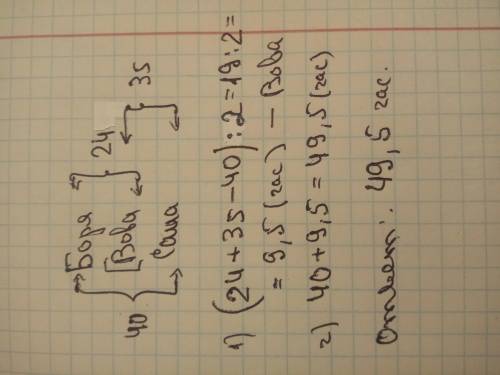 Боря
Вова 24
Саша 35
40
1) (24+35-40):2=19:2=
=9,5 (час) – Вова
2) 40+9,5=49,5 (час)
Ответ: 49,5 час.